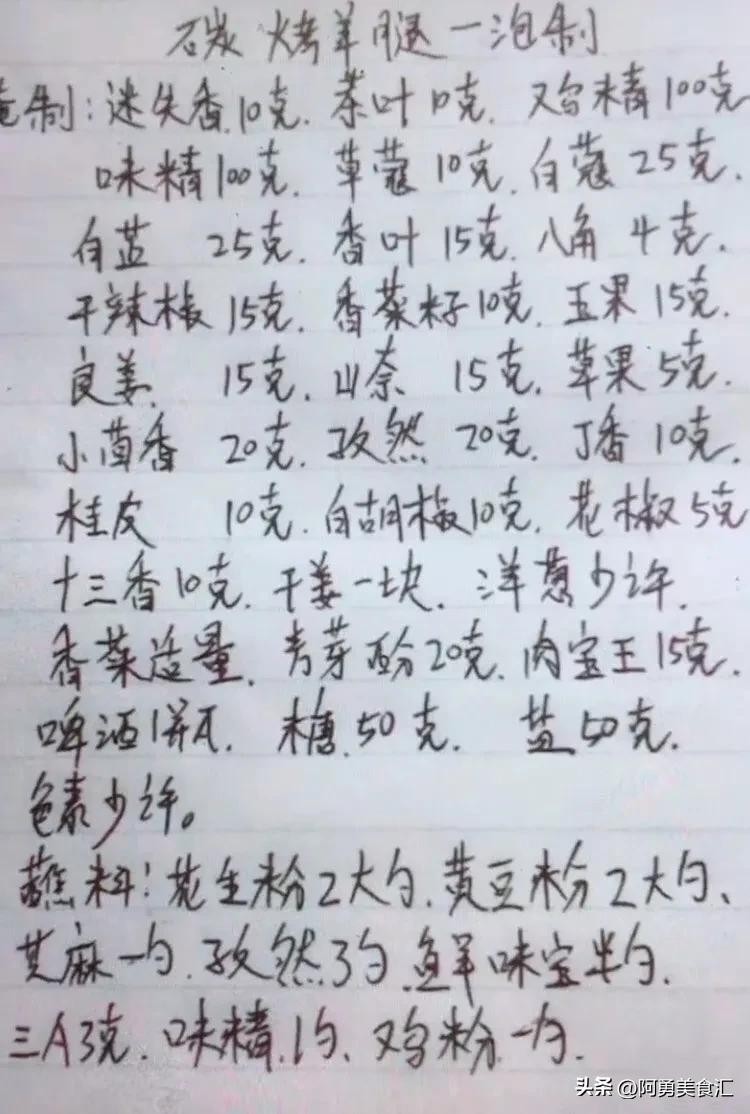 碳烤羊腿一泡制
腌制:迷失香10克.茶叶10克.鸡精100克
味精100克.草蔻10克.白蔻25克.
白蓝 25克.香叶15克.八角4克.
干辣椒15克.香菜籽10克.玉果15克.
良姜 15克.山奈 15克.草果5克.
小茴香 20克.孜然 20克.丁香10克.
桂皮 10克.白胡椒10克.花椒5克
十三香10克.干姜一块.洋葱少许.
香菜适量.麦芽酚20克.肉宝王15克.
啤酒1瓶.糖50克.盐50克.
色素少许。
蘸料:花生粉2大勺.黄豆粉2大勺、
芝麻一勺.孜然3勺.鲜味宝半勺.
三A3克.味精1勺、鸡粉一勺.
头条 @阿勇美食汇